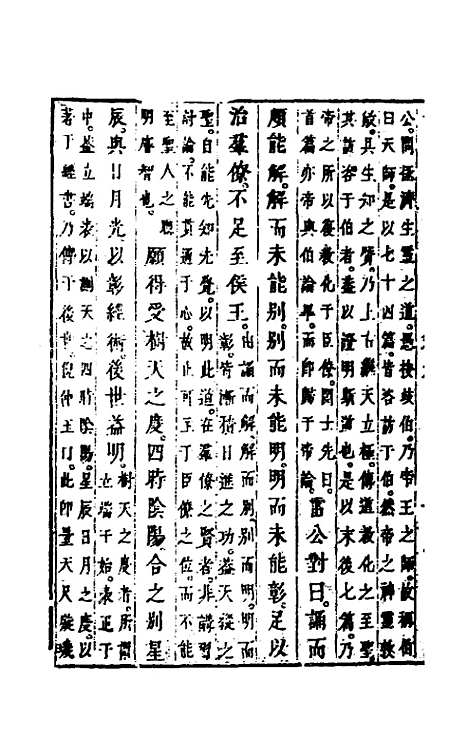 公問拯濟生靈之道是後岐伯乃帝王之師故稱伯
曰天師是以七十四篇皆咨訪于伯然帝之神靈敦
敏具生知之質乃上古繼天立極傳道敎化之至聖
其咨于伯者蓋以證明斯道也是以末後七篇乃
帝之所以復敎化于臣僚四士先曰
首篇亦帝與伯論畢而即歸于帝論
雷公對曰誦而
頗能解解而未能別別而未能明明而未能彰足以
治羣僚不足至侯王
由誦而解解而別別而明明而
彰皆漸積日進之功蓋天縱之
聖自能先知先覺以明此道在羣僚之賢者非講明
討論不能貫通于心故止可工于臣僚之位而不能
至聖人之聰
明睿智也
願得受樹天之度四時陰陽合之別星
辰與日月光以彰經術後世益明
樹天之度者所謂
立端于始表正于
中蓋立端表以測天之四時陰陽星辰日月之度以
著于經書乃傳于後世倪仲玉曰此即量天尺璇璣